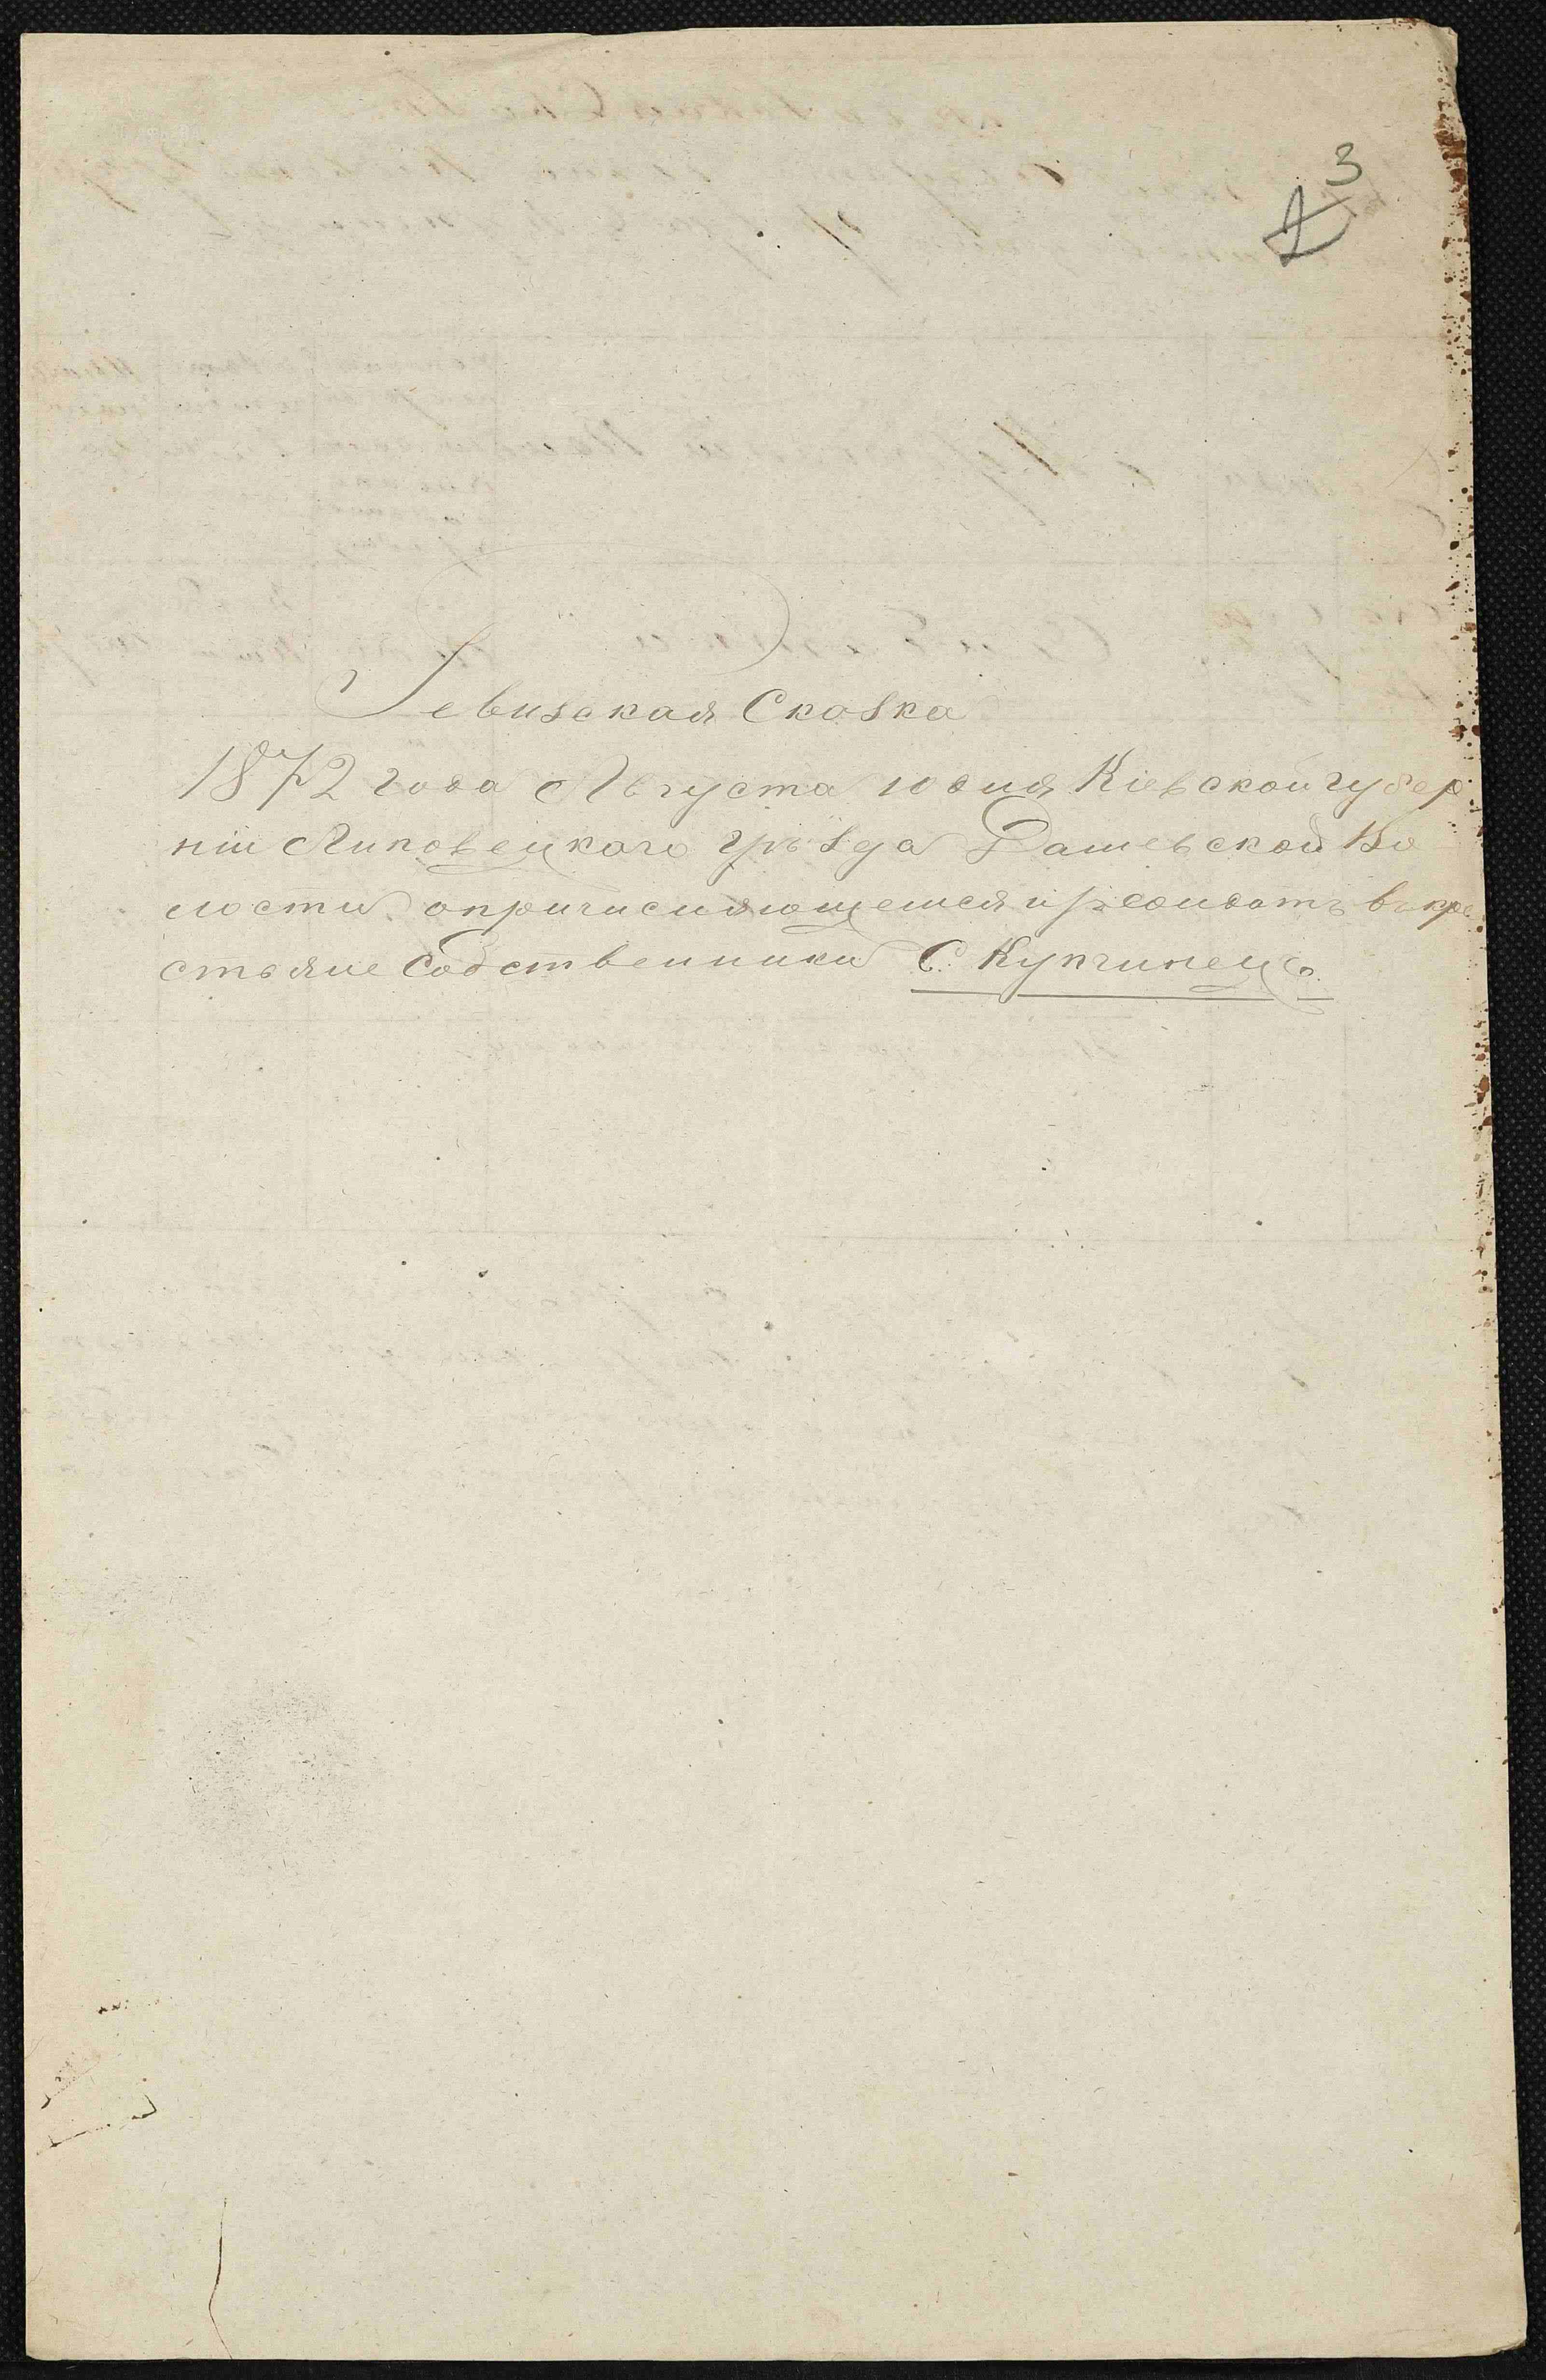 3
2
Ревизская Сказка
1872 года Августа 10 дня Кіевской губер
ніи Липовецкого уѣзда Дашевской Во
лости, о причисляющемся в кре
стьяне Собственники С. Купчинецъ.